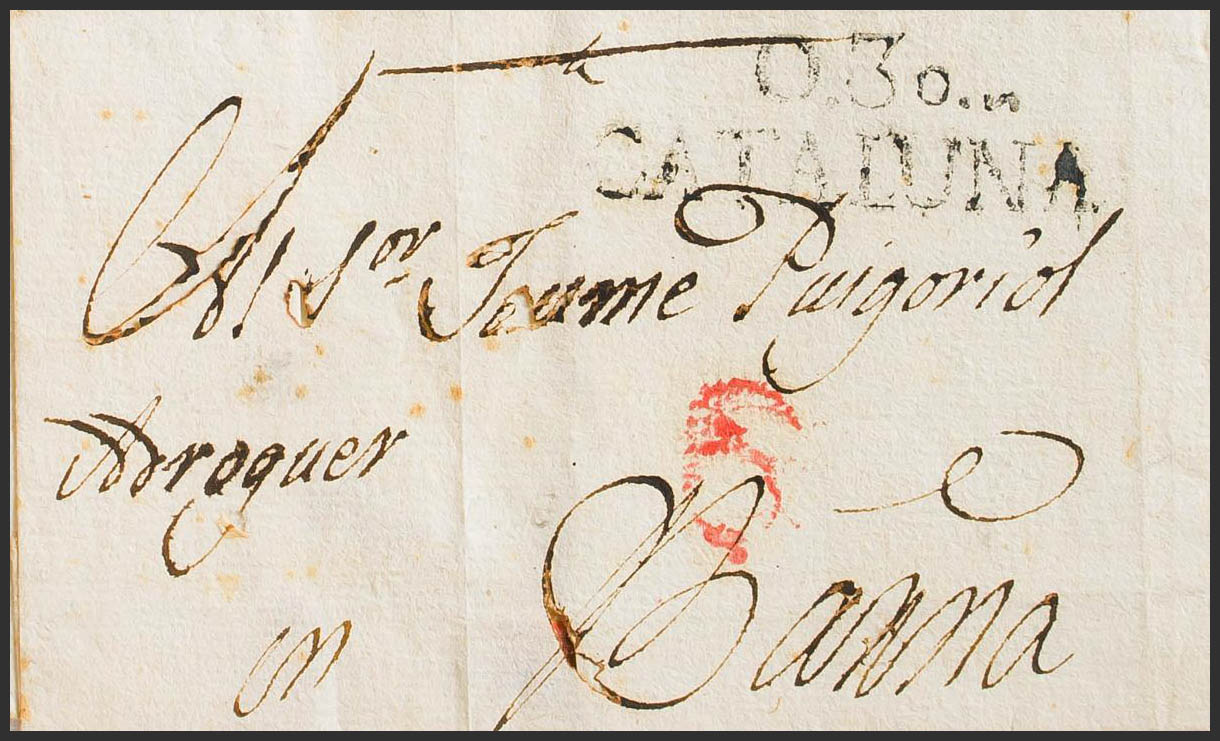 O.3o...
CATALUÑA
Al Sor Jaume Puigoriol
Adroguer
en
Barna